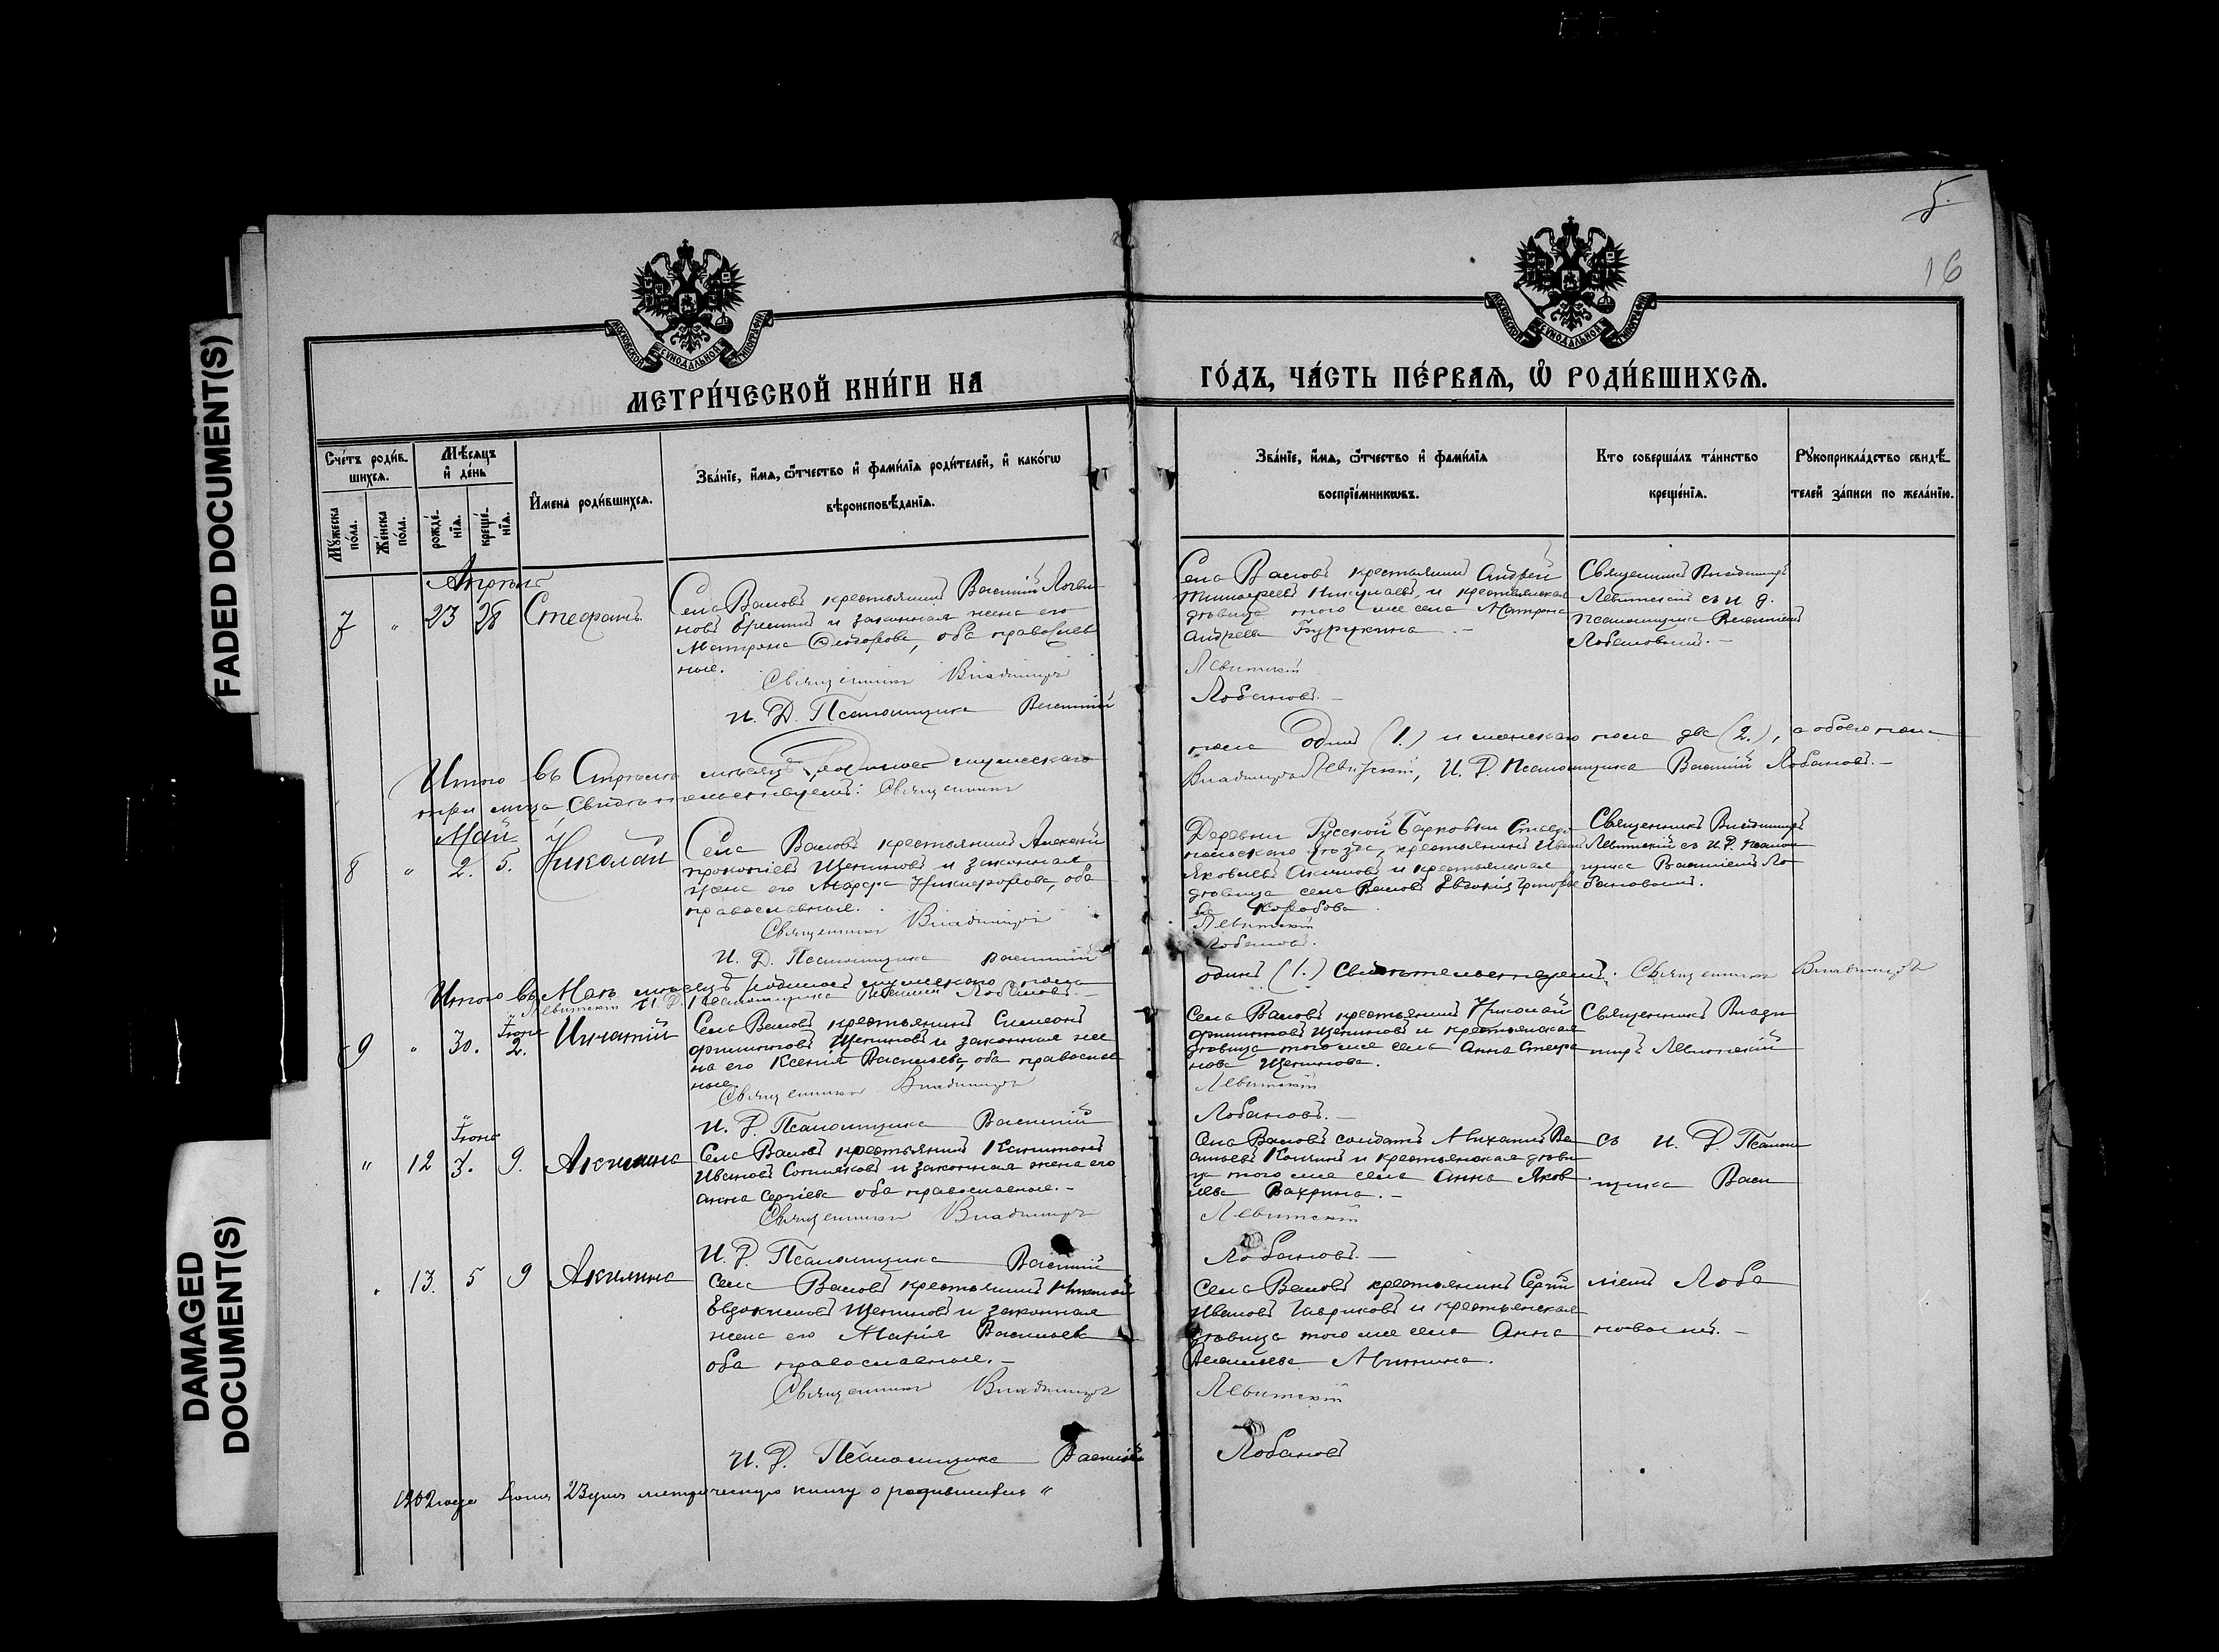 FADED DOCUMENT(S)
DAMAGED
DOCUMENT(S)
5.
16
МОСКОВСКОЙ СѴНОДАЛЬНОЙ ТИПОГРАФІИ
МОСКОВСКОЙ СѴНОДАЛЬНОЙ ТИПОГРАФІИ
МЕТРИ́ЧЕСКОЙ КНИ́ГИ НА
ГО́ДЪ, ЧА́СТЬ ПЕ́РВАѦ, Ѽ РОДИ́ВШИХСѦ.
Сче́тъ роди́в-
шихсѧ.
Мꙋ́жеска по́ла.
Же́нска по́ла.
Мѣ́сѧцъ
и҆ де́нь
рожде́-
нїѧ.
креще́-
нїѧ.
И҆мена̀ роди́вшихсѧ.
Зва́нїе, и҆́мѧ, ѻ҆́тчество и҆ фами́лїѧ роди́телей, и҆ како́гѡ
вѣроисповѣ́данїѧ.
Зва́нїе, и҆́мѧ, ѻ҆́тчество и҆ фами́лїѧ
воспрїе́мникѡвъ.
Кто̀ соверша́лъ та́инство
креще́нїѧ.
Рꙋкоприкла́дство свидѣ́-
телей за́писи по жела́нїю.
Апрѣль
7 " 23 28 Стефанъ.
Села Валовъ крестьянинъ Василій Логви-
новъ Еремин и законная жена его
Матрона Ѳеодорова, оба православ-
ные.
Священникъ Владиміръ
И. Д. Псаломщика Василій
Села Валовъ крестьянинъ Андрей
Тимоѳеевъ Николаевъ, и крестьянская
дѣвица того же села Матрона
Андреева Бурукина.-
Левитскій
Лобановъ.-
Священникъ Владиміръ
Левитскій съ и д.
псаломщика Василіемъ
Лобановымъ.-
Итого въ Апрѣлѣ мѣсяцѣ родилось мужескаго
пола одинъ (1.) и женскаго пола два (2.), а обоего пола
три лица, Свидѣтельствуемъ: Священникъ
Владиміръ Левитскій, И. Д. Псаломщика Василій Лобановъ.-
Май
8 " 2. 5. Николай
Села Валовъ крестьянинъ Алексѣй
Прокопіевъ Щениновъ и законная
жена его Марфа Никифорова, оба
православные.
Священникъ Владиміръ
И. Д. Псаломщика Василій
Деревни Русской Барковки Ставро-
польскаго уѣзда, крестьянинъ Иванъ
Яковлевъ Акимовъ и крестьянская
дѣвица села Валовъ Евгенія Григорье-
ва Коробова
Левитскій
Лобановъ.
Священникъ Владиміръ
Левитскій съ И. Д. псалом-
щика Василіемъ Ло-
бановымъ.
Итого въ Маѣ мѣсяцѣ родилось мужескаго пола
одинъ (1.) Свидѣтельствуемъ: Священникъ Владиміръ
Левитскій И. Д. Псаломщика Василій Лобановъ.-
Іюня
9 " 30. 2. Игнатій
Села Валовъ крестьянинъ Симеонъ
Филипповъ Щениновъ и законная же-
на его Ксенія Васильева, оба православ-
ные.
Священникъ Владиміръ
И. Д. Псаломщика Василій
Села Валовъ крестьянинъ Николай
Филипповъ Щениновъ и крестьянская
дѣвица того же села Анна Стефа-
нова Щенинова.
Левитскій
Лобановъ.-
Священникъ Влади-
миръ Левитскій
Іюнь
" 12 3. 9. Акилина
Села Валовъ крестьянинъ Капитонъ
Ивановъ и законная жена его
Анна Сергіева оба православные.-
Священникъ Владиміръ
И. Д. Псаломщика Василій
Села Валовъ солдатъ Михаилъ Ва-
сильевъ и крестьянская дѣви-
ца того же села Анна Яков-
лева Вахрина.-
Левитскій
Лобановъ.-
съ И. Д. Псалом-
щика Васи-
" 13. 5 9 Акилина
Села Валовъ крестьянинъ Николай
Евдокимовъ Щениновъ и законная
жена его Марія Васильева
оба православные.-
Священникъ Владиміръ
И. Д. Псаломщика Василій
Села Валовъ крестьянинъ Сергій
Ивановъ Гавриковъ и крестьянская
дѣвица того же села Анна
Васильева Минина.
Левитскій
Лобановъ
ліемъ Лоба-
новымъ.-
1902 года Іюня 23 дня метрическую книгу о родившихся "